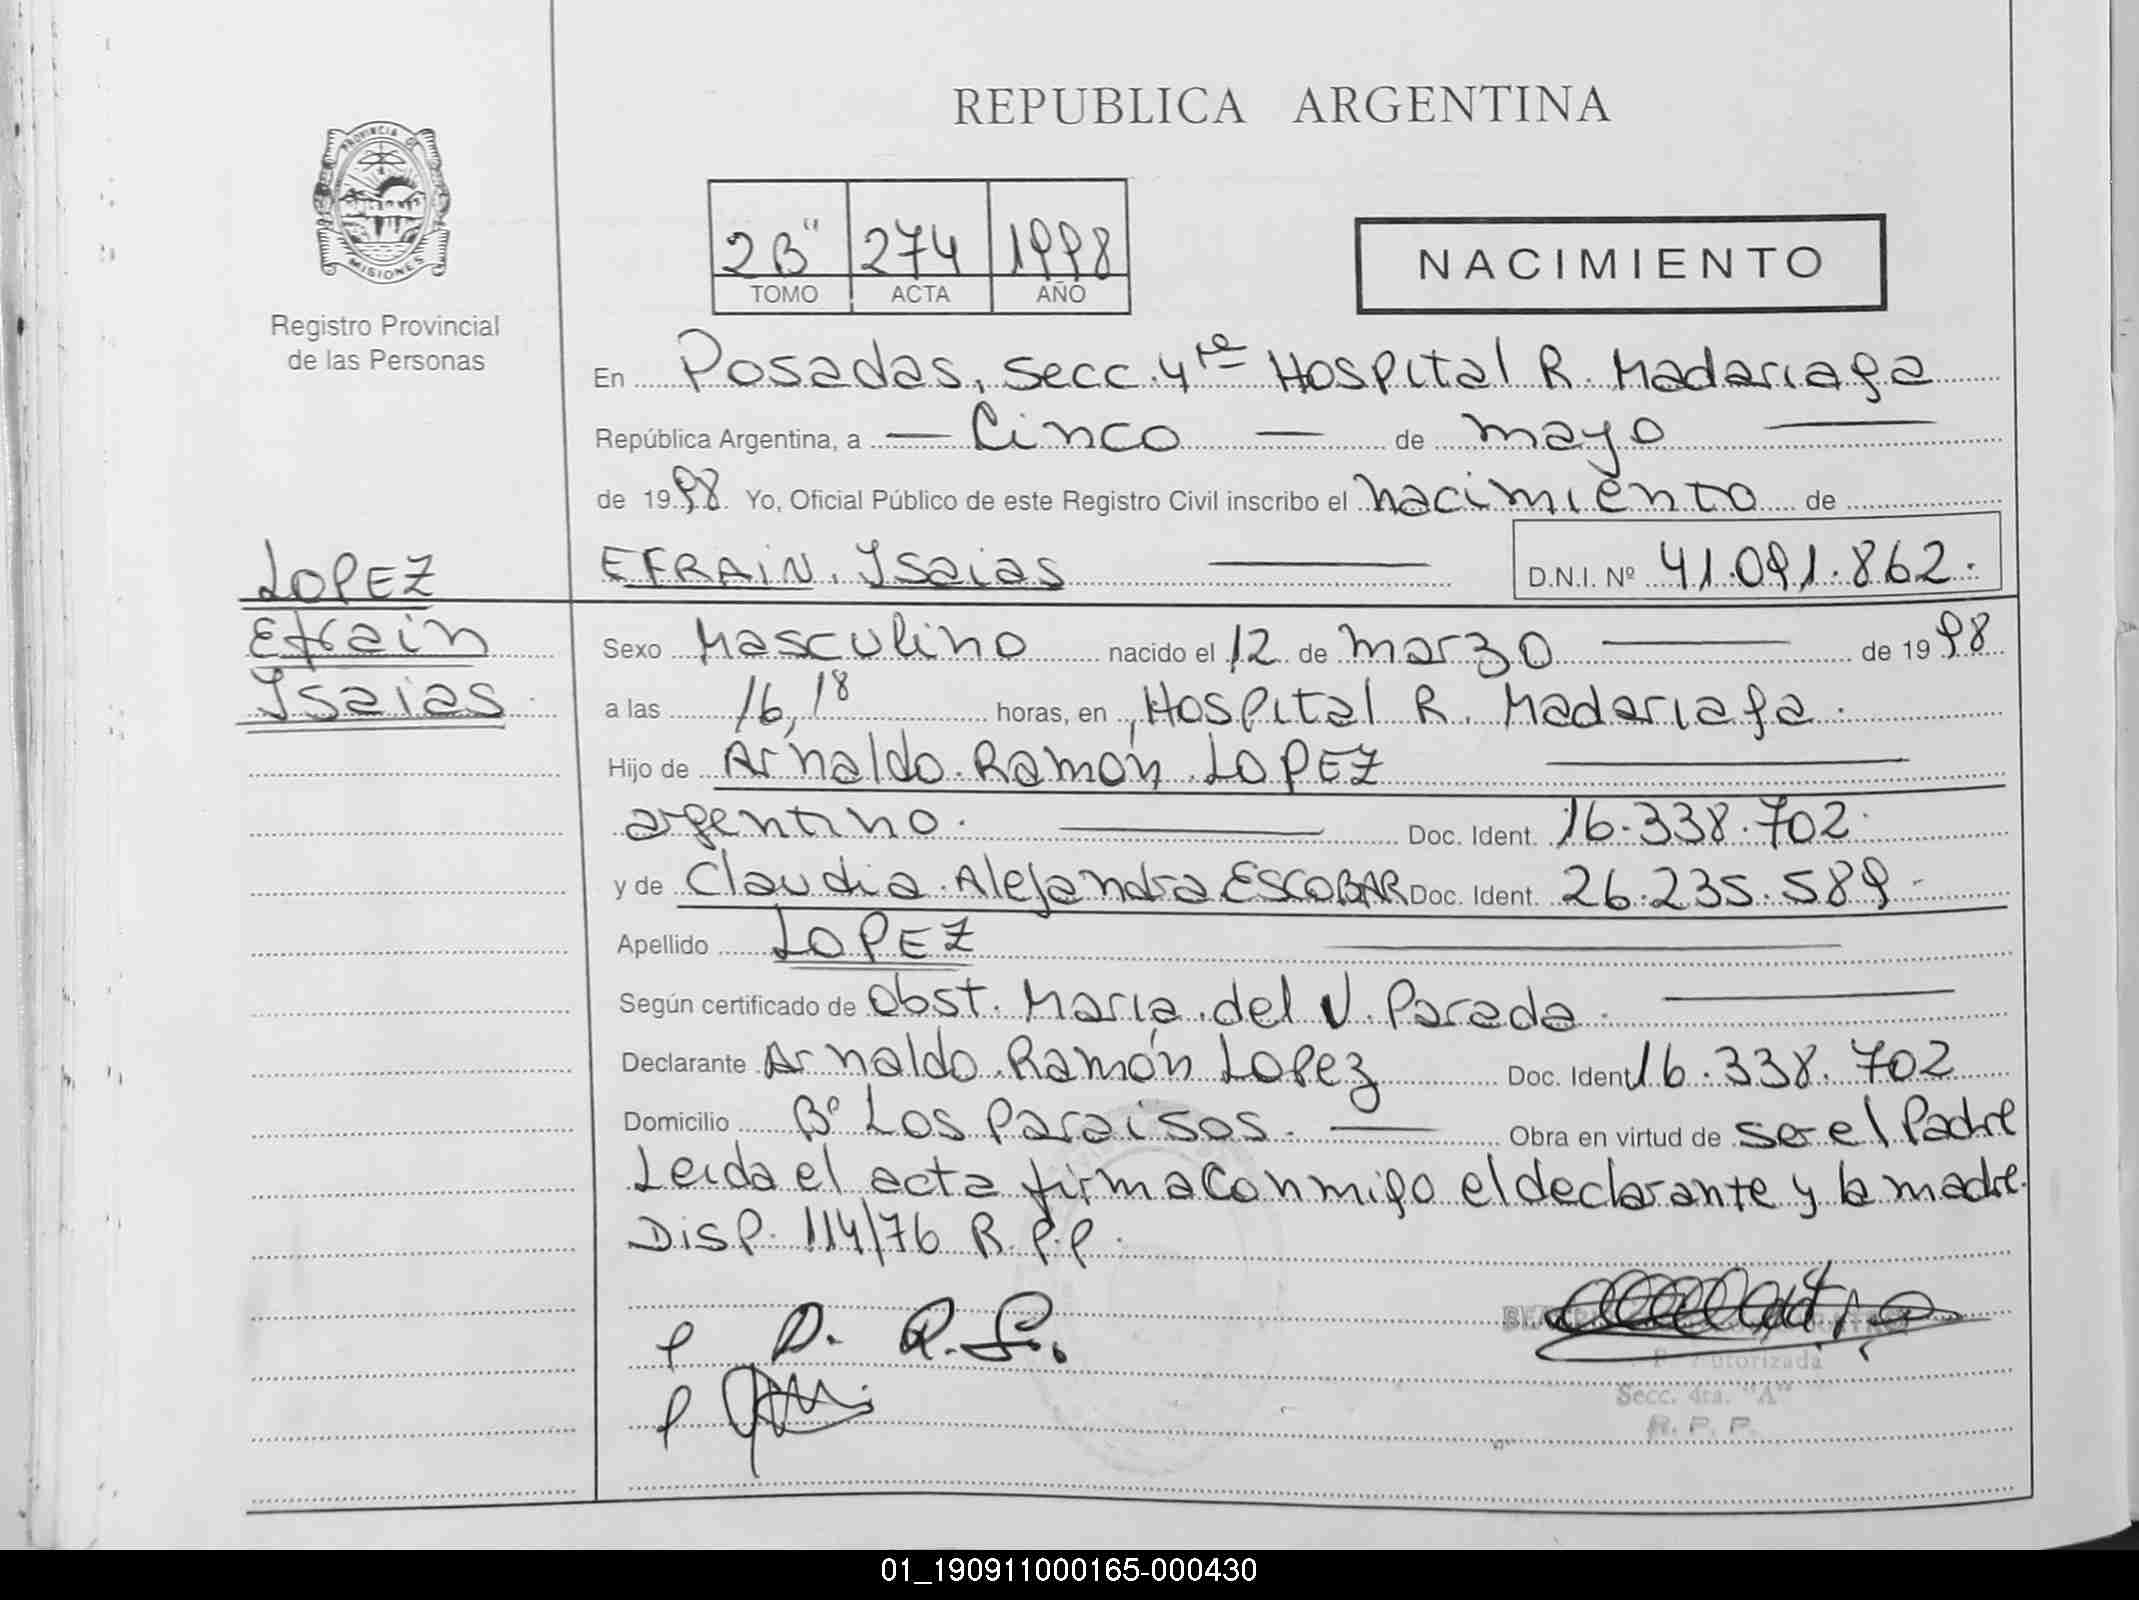 REPUBLICA ARGENTINA
PROVINCIA DE
MISIONES
Registro Provincial
de las Personas
2B" 274 1998
TOMO ACTA AÑO
NACIMIENTO
En Posadas, secc. 4ta Hospital R. Madariaga
República Argentina, a — Cinco — de mayo —
de 1998 Yo, Oficial Público de este Registro Civil inscribo el nacimiento de
EFRAIN. Isaias — D.N.I. Nº 41.091.862.
LOPEZ
Efrain
Isaias
Sexo Masculino nacido el 12 de marzo — de 1998
a las 16,18 horas, en Hospital R. Madariaga.
Hijo de Arnaldo Ramón LOPEZ —
argentino. — Doc. Ident. 16.338.702.
y de Claudia Alejandra ESCOBAR Doc. Ident. 26.235.589.-
Apellido LOPEZ —
Según certificado de Obst. María del V. Parada. —
Declarante Arnaldo Ramón Lopez Doc. Ident 16.338.702
Domicilio Bº Los Paraisos. — Obra en virtud de ser el Padre
Leida el acta firma Conmigo el declarante y la madre.
Disp. 114/76 R.P.P.
Autorizada
Secc. 4ta. "A"
R. P. P.
01_190911000165-000430